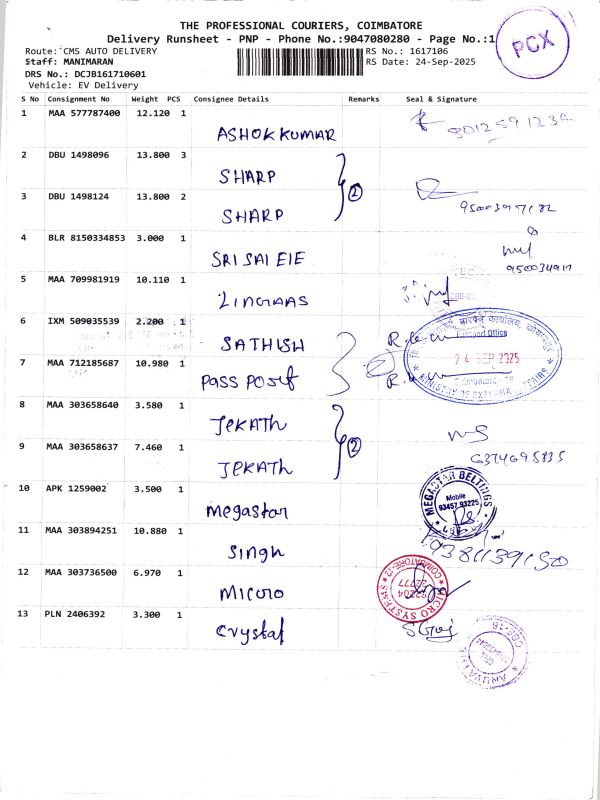 THE PROFESSIONAL COURIERS, COIMBATORE
Delivery Runsheet - PNP - Phone No.:9047080280 - Page No.:1
PCX
Route: CMS AUTO DELIVERY
RS No.: 1617106
Staff: MANIMARAN
RS Date: 24-Sep-2025
DRS No.: DCJB161710601
Vehicle: EV Delivery
S No Consignment No Weight PCS Consignee Details Remarks Seal & Signature
1 MAA 577787400 12.120 1
ASHOK KUMAR
2 DBU 1498096 13.800 3
SHARP
2
3 DBU 1498124 13.800 2
SHARP
4 BLR 8150334853 3.000 1
SRI SAI EIE
5 MAA 709981919 10.110 1
6 IXM 509035539 2.200 1
SATHISH
24 SEP 2025
7 MAA 712185687 10.980 1
PASS PORT
MINISTRY OF EXTERNAL AFFAIRS
8 MAA 303658640 3.580 1
JEKATH
2
9 MAA 303658637 7.460 1
JEKATH
10 APK 1259002 3.500 1
Megastar
MEGASTAR BELTINGS
Mobile
93457 93225
11 MAA 303894251 10.880 1
Singh
12 MAA 303736500 6.970 1
MICRO
MICRO SYSTEMS
COIMBATORE-12
13 PLN 2406392 3.300 1
Crystal